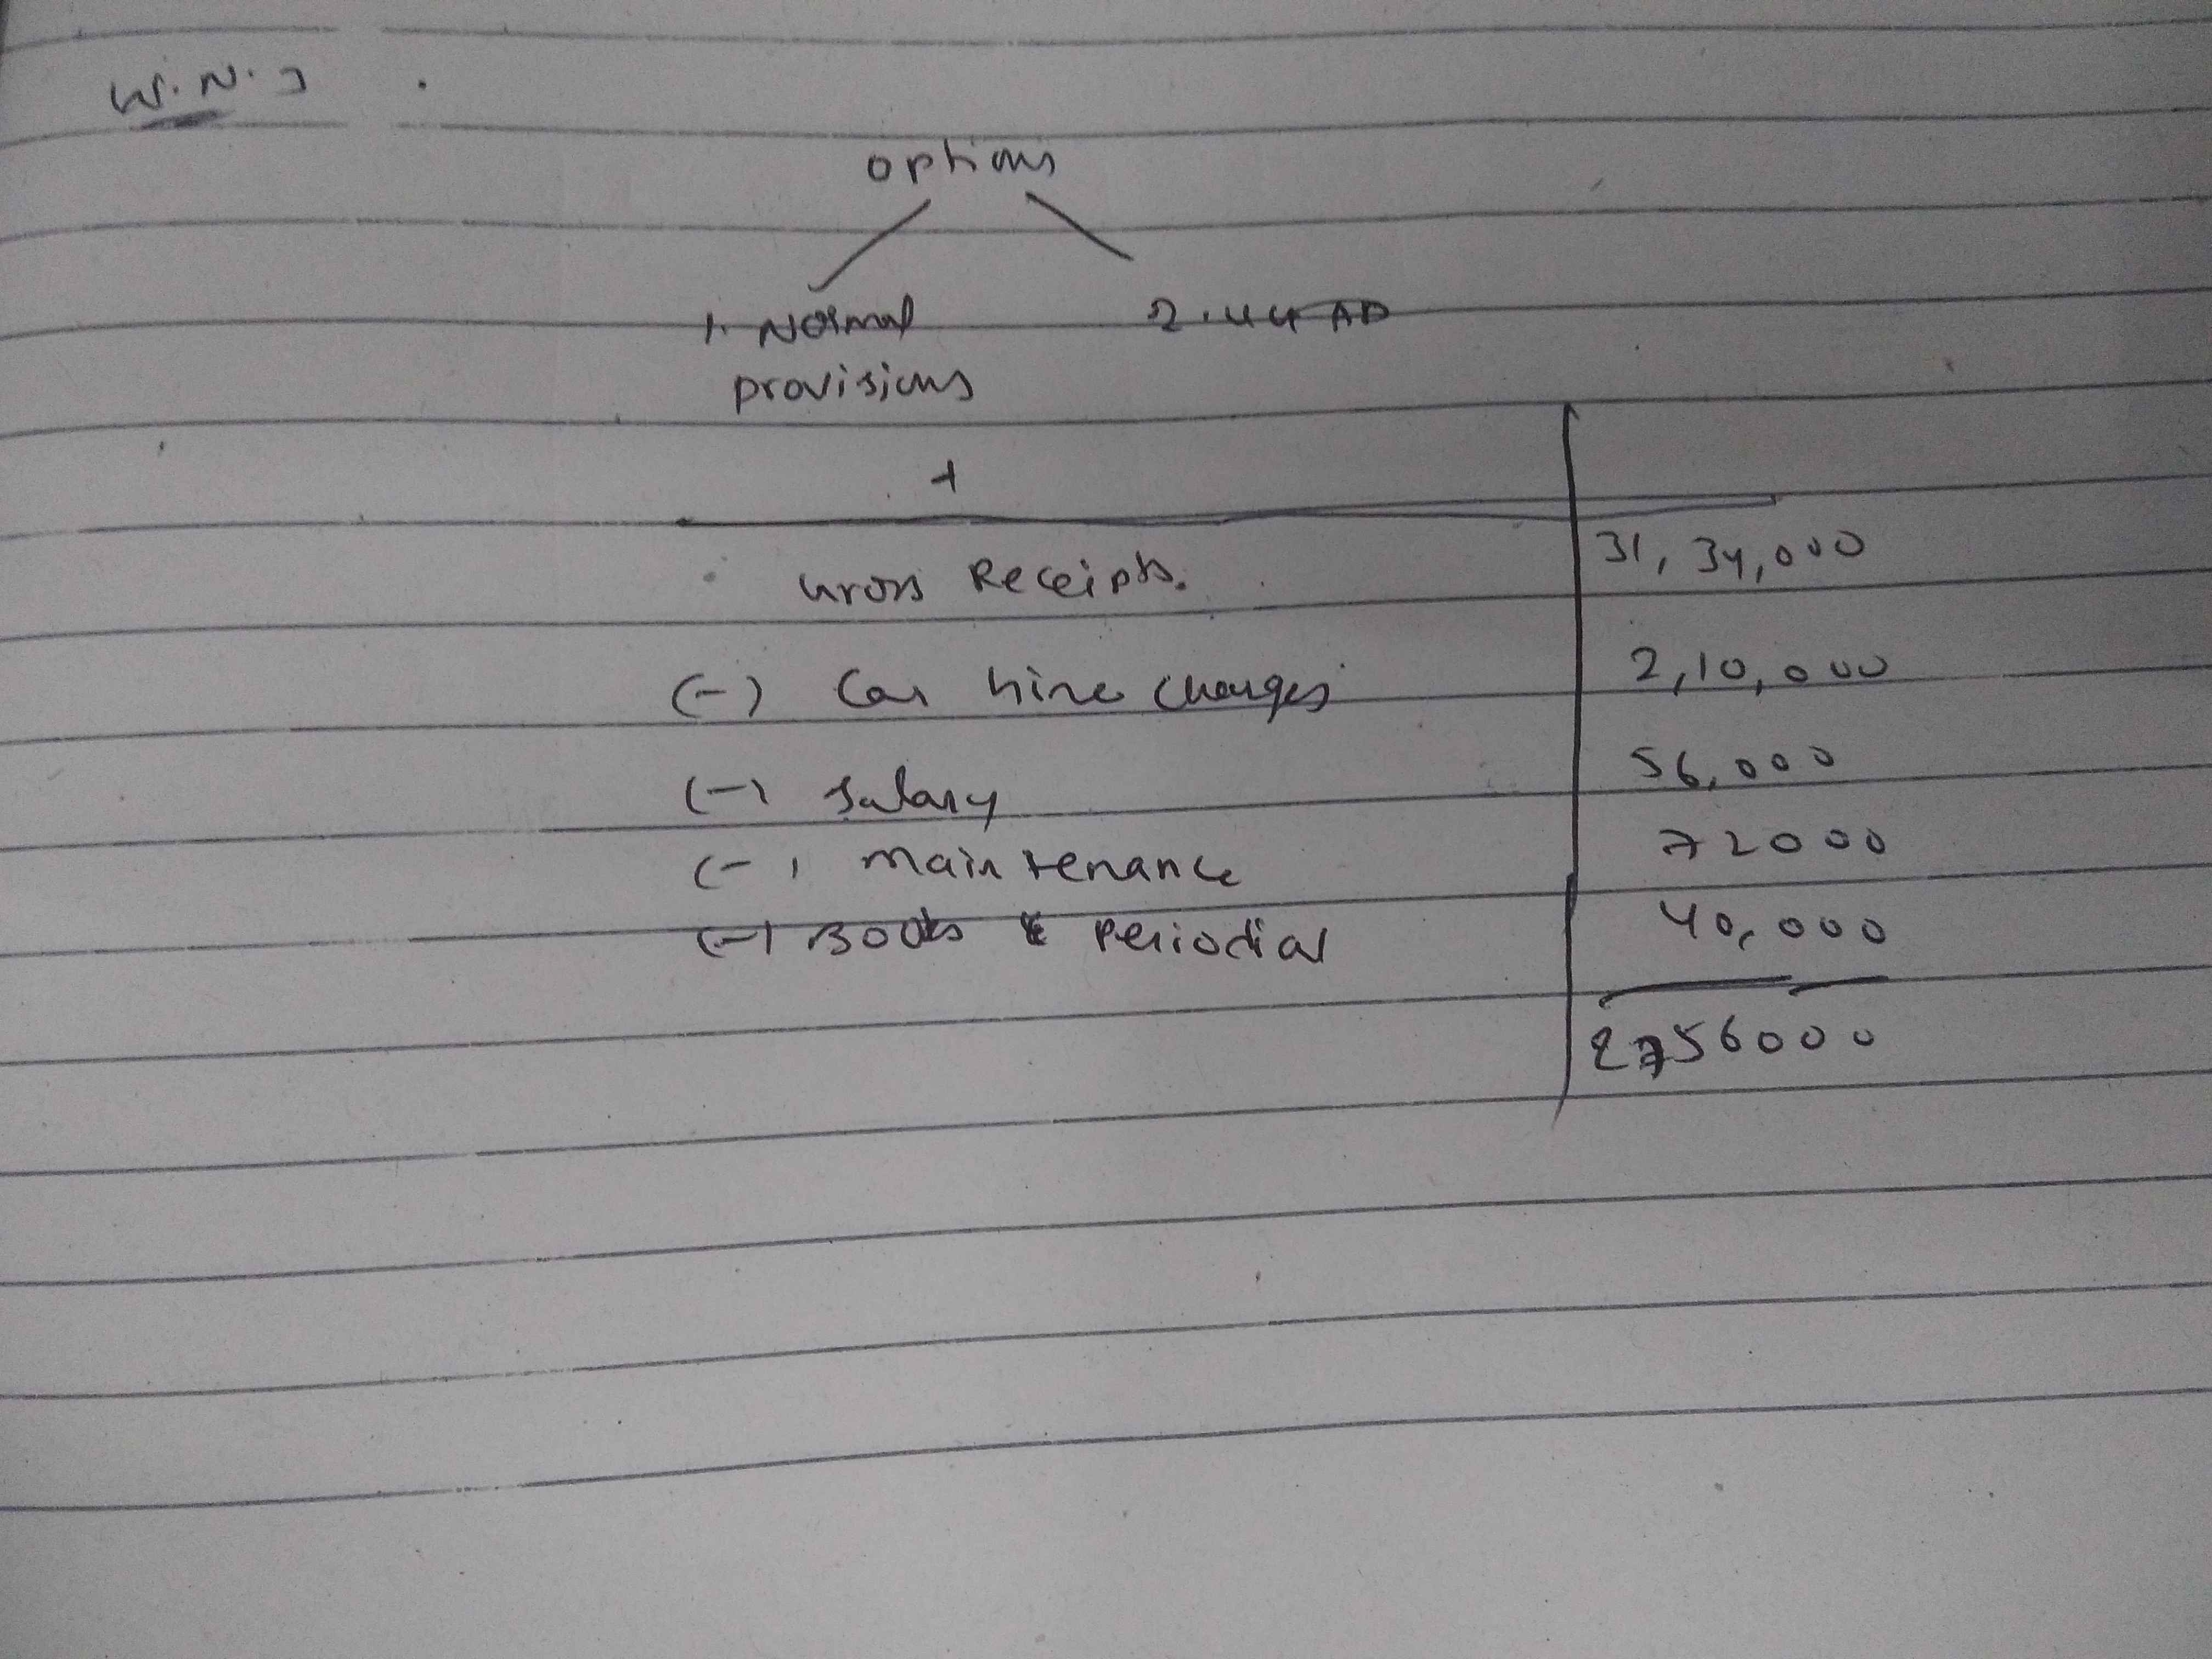 W.N. 1
options
1. Normal 2. 44 AD
provisions
Gross Receipts. 31,34,000
(-) Car hire charges 2,10,000
(-) Salary 56,000
(-) maintenance 72000
(-) Books & Periodial 40,000
2756000